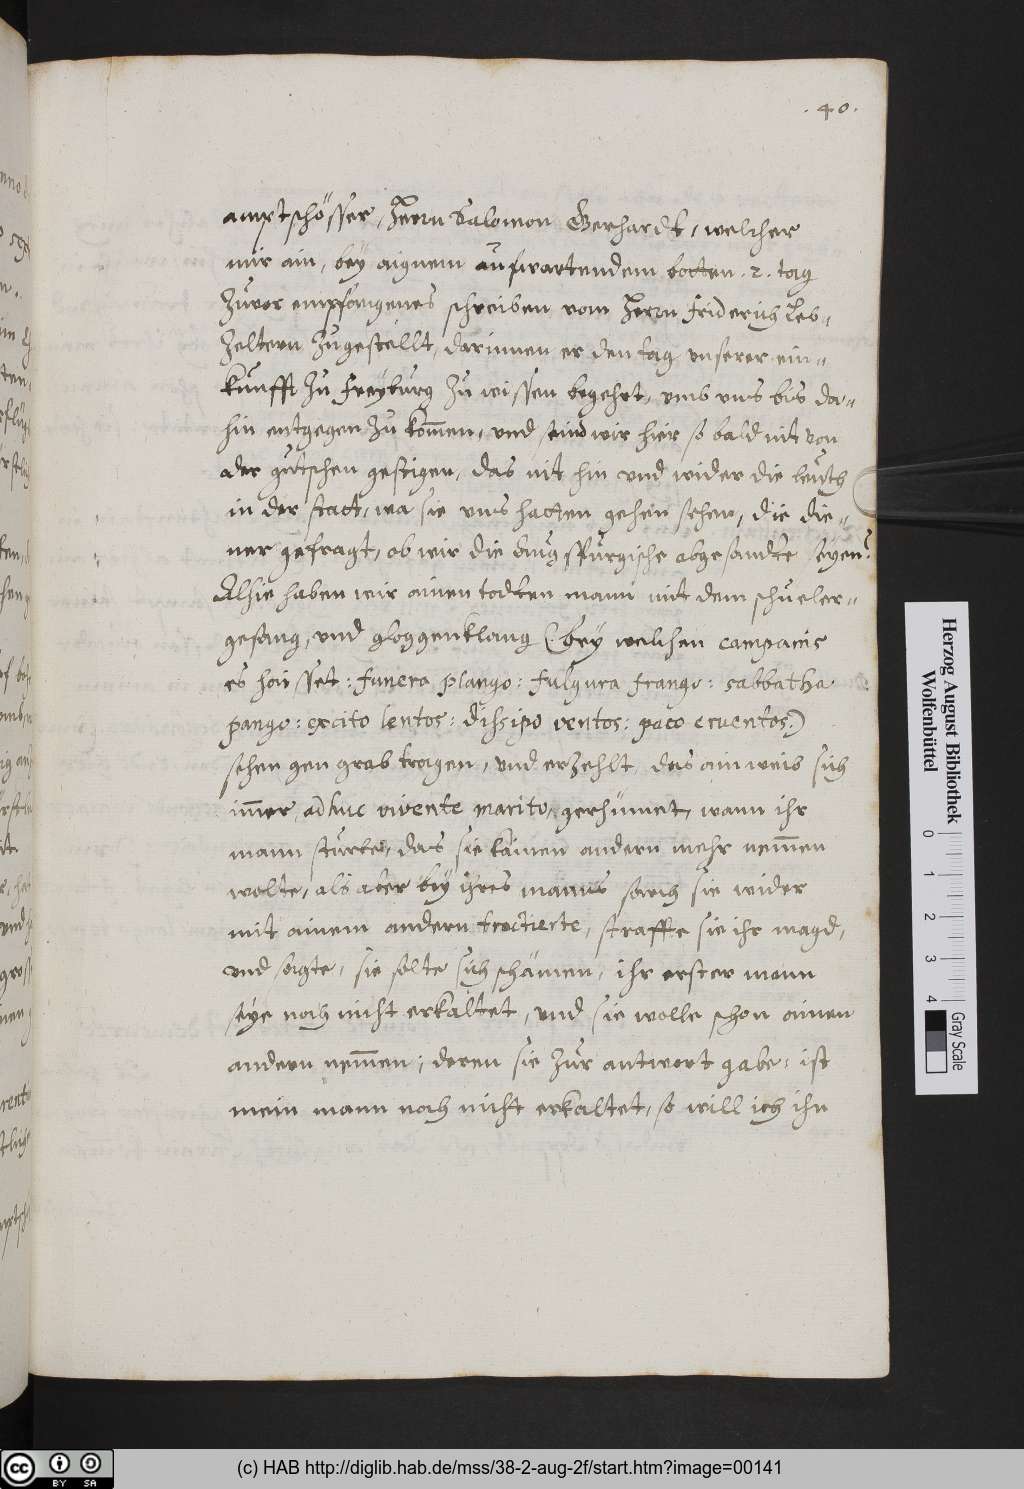 . 40 .
amptschösser, Herrn Salomon Gerhardt, welcher
mir ain, beÿ aignem aufwartendem botten . 2 . tag
zuvor empfangenes schreiben vom Herrn Friderich Leb-
zeltern zugestellt, darinnen er den tag unserer ein-
kunfft zu Freÿburg zu wissen begehrt, umb uns bis da-
hin entgegen zu kom̅en, und seind wir hier so bald nit von
der gutschen gestigen, das nit hin und wider die leuth
in der statt, wa sie uns hatten gehen sehen, die die-
ner gefragt, ob wir die Augspurgische abgesandte seÿen?
Alhie haben wir ainen todten mann mit dem schueler-
gesang, und gloggenklang (beÿ welchen campanis
es haisset: funera plango: fulgura frango: sabbatha
pango: excito lentos: dissipo ventos: paco cruentos.)
sehen gen grab tragen, und erzehlt, das ain weib sich
im̅er, adhuc vivente marito, gerhümet, wann ihr
mann sturbe, das sie kainen andern mehr nem̅en
wolte, als aber beÿ ihres manns sarch sie wider
mit ainem andern tractierte, straffte sie ihr magd,
und sagte, sie solte sich schämen, ihr erster mann
seÿe noch nicht erkaltet, und sie wolle schon ainen
andern nem̅en; deren sie zur antwort gabe: ist
mein mann noch nicht erkaltet, so will ich ihn
Herzog August Bibliothek
Wolfenbüttel
0 1 2 3 4
Gray Scale
cc BY SA
(c) HAB http://diglib.hab.de/mss/38-2-aug-2f/start.htm?image=00141